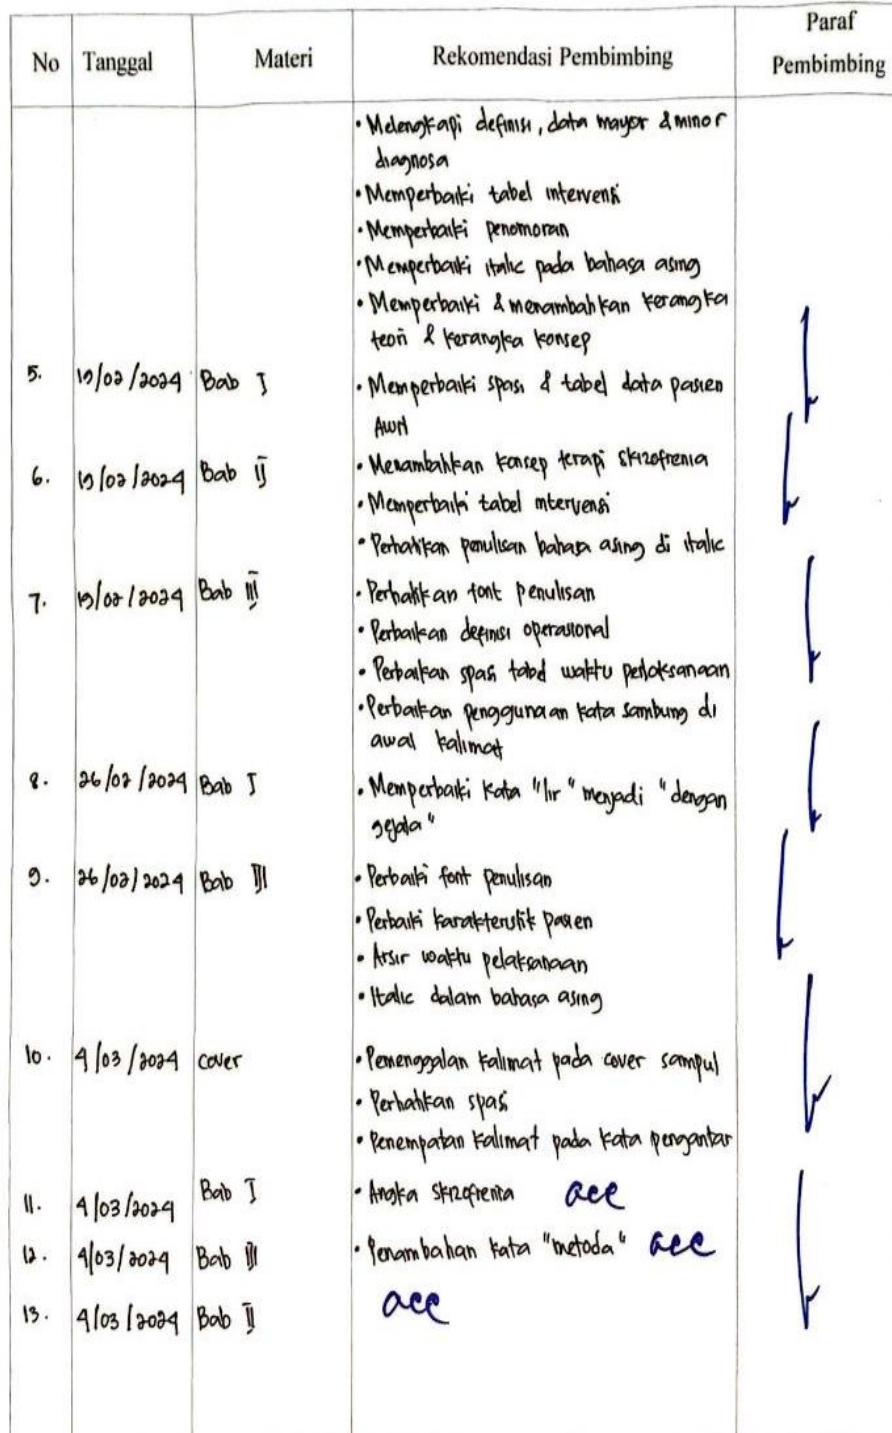 No Tanggal Materi Rekomendasi Pembimbing Paraf Pembimbing
• Melengkapi definisi, data mayor & minor
diagnosa
• Memperbaiki tabel intervensi
• Memperbaiki penomoran
• Memperbaiki italic pada bahasa asing
• Memperbaiki & menambahkan kerangka
teori & kerangka konsep
5. 19/02/2024 Bab I • Memperbaiki spasi & tabel data pasien
Awal
6. 19/02/2024 Bab II • Menambahkan konsep terapi skizofrenia
• Memperbaiki tabel intervensi
• Perhatikan penulisan bahasa asing di italic
7. 19/02/2024 Bab III • Perhatikan font penulisan
• Perbaikan definisi operasional
• Perbaikan spasi tabel waktu pelaksanaan
• Perbaikan penggunaan kata sambung di
awal kalimat
8. 26/02/2024 Bab I • Memperbaiki kata "lir" menjadi "dengan
gejala"
9. 26/02/2024 Bab III • Perbaiki font penulisan
• Perbaiki karakteristik pasien
• Arsir waktu pelaksanaan
• Italic dalam bahasa asing
10. 4/03/2024 cover • Pemenggalan kalimat pada cover sampul
• Perhatikan spasi
• Penempatan kalimat pada kata pengantar
11. 4/03/2024 Bab I • Angka skizofrenia acc
12. 4/03/2024 Bab III • Penambahan kata "metoda" acc
13. 4/03/2024 Bab II acc